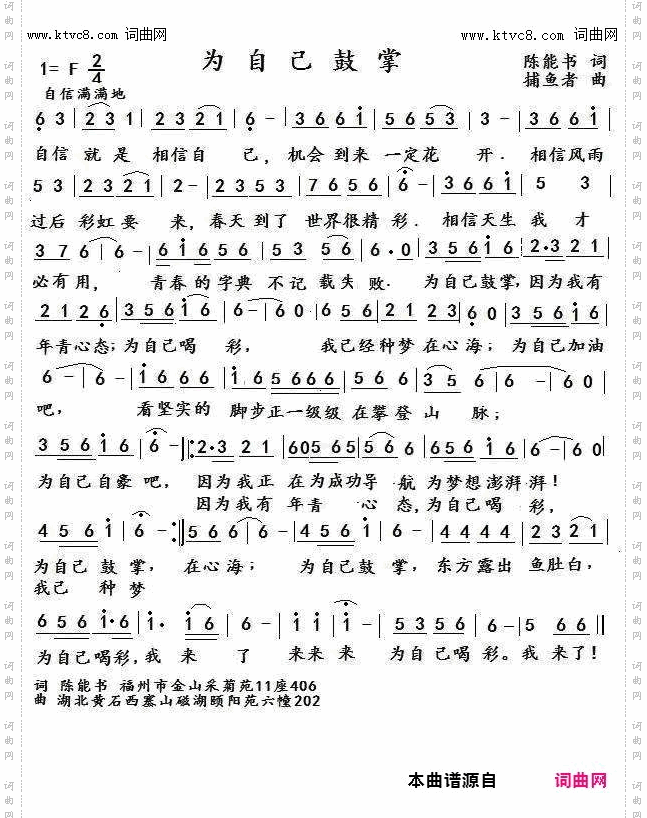 www.ktvc8.com 词曲网 www.ktvc8.com 词曲网
为自己鼓掌
1= F 2/4
陈能书 词
捕鱼者 曲
自信满满地
6 3 | 2 3 1 | 2 3 2 1 | 6 - | 3 6 6 1 | 5 6 5 3 | 3 - | 3 6 6 1 |
自信 就 是 相信自 己, 机会到来 一定花 开. 相信风雨
5 3 | 2 3 2 1 | 2 - | 2 3 5 3 | 7 6 5 6 | 6 - | 3 6 6 1 | 5 3
过后 彩虹要 来, 春天到了 世界很精 彩. 相信天生 我 才
3 7 6 | 6 - | 6 1 6 5 6 | 5 3 | 5 6 | 6·0 | 3 5 6 1 6 | 2·3 2 1 |
必有用, 青春的字典 不记 载失 败. 为自己鼓掌,因为我有
2 1 2 6 | 3 5 6 1 6 | 6 - | 6 0 | 5 6 5 6 | 2 1 2 3 | 3 5 6 1 6 |
年青心态;为自己喝 彩, 我已经种梦在心海; 为自己加油
6 - | 6 - | 1 6 6 6 | 1 6 5 6 6 6 | 5 6 6 | 3 5 | 6 - | 6 0 |
吧, 看坚实的 脚步正一级级 在攀登 山 脉;
3 5 6 1 6 | 6 - |: 2·3 2 1 | 6 0 5 6 5 | 5 6 6 | 6 5 6 1 6 | 6 - | 6 0
为自己自豪吧, 因为我正 在为成功导 航为梦想澎湃湃!
因为我有 年青 心态,为自己喝 彩,
4 5 6 1 | 6 - :| 5 6 6 | 6 - | 4 5 6 1 | 6 - | 4 4 4 4 | 2 3 2 1 |
为自己 鼓 掌, 在心海; 为自己鼓 掌, 东方露出 鱼肚白,
我已 种 梦
6 5 6 1·6 | 1· 1 6 | 6 - | 1 1 | 1 - | 5 3 5 6 | 6 - | 5 6 6 ||
为自己喝彩,我 来 了 来来 来 为自己喝彩。我来了!
词 陈能书 福州市金山采菊苑11座406
曲 湖北黄石西塞山磁湖颐阳苑六幢202
本曲谱源自 词曲网